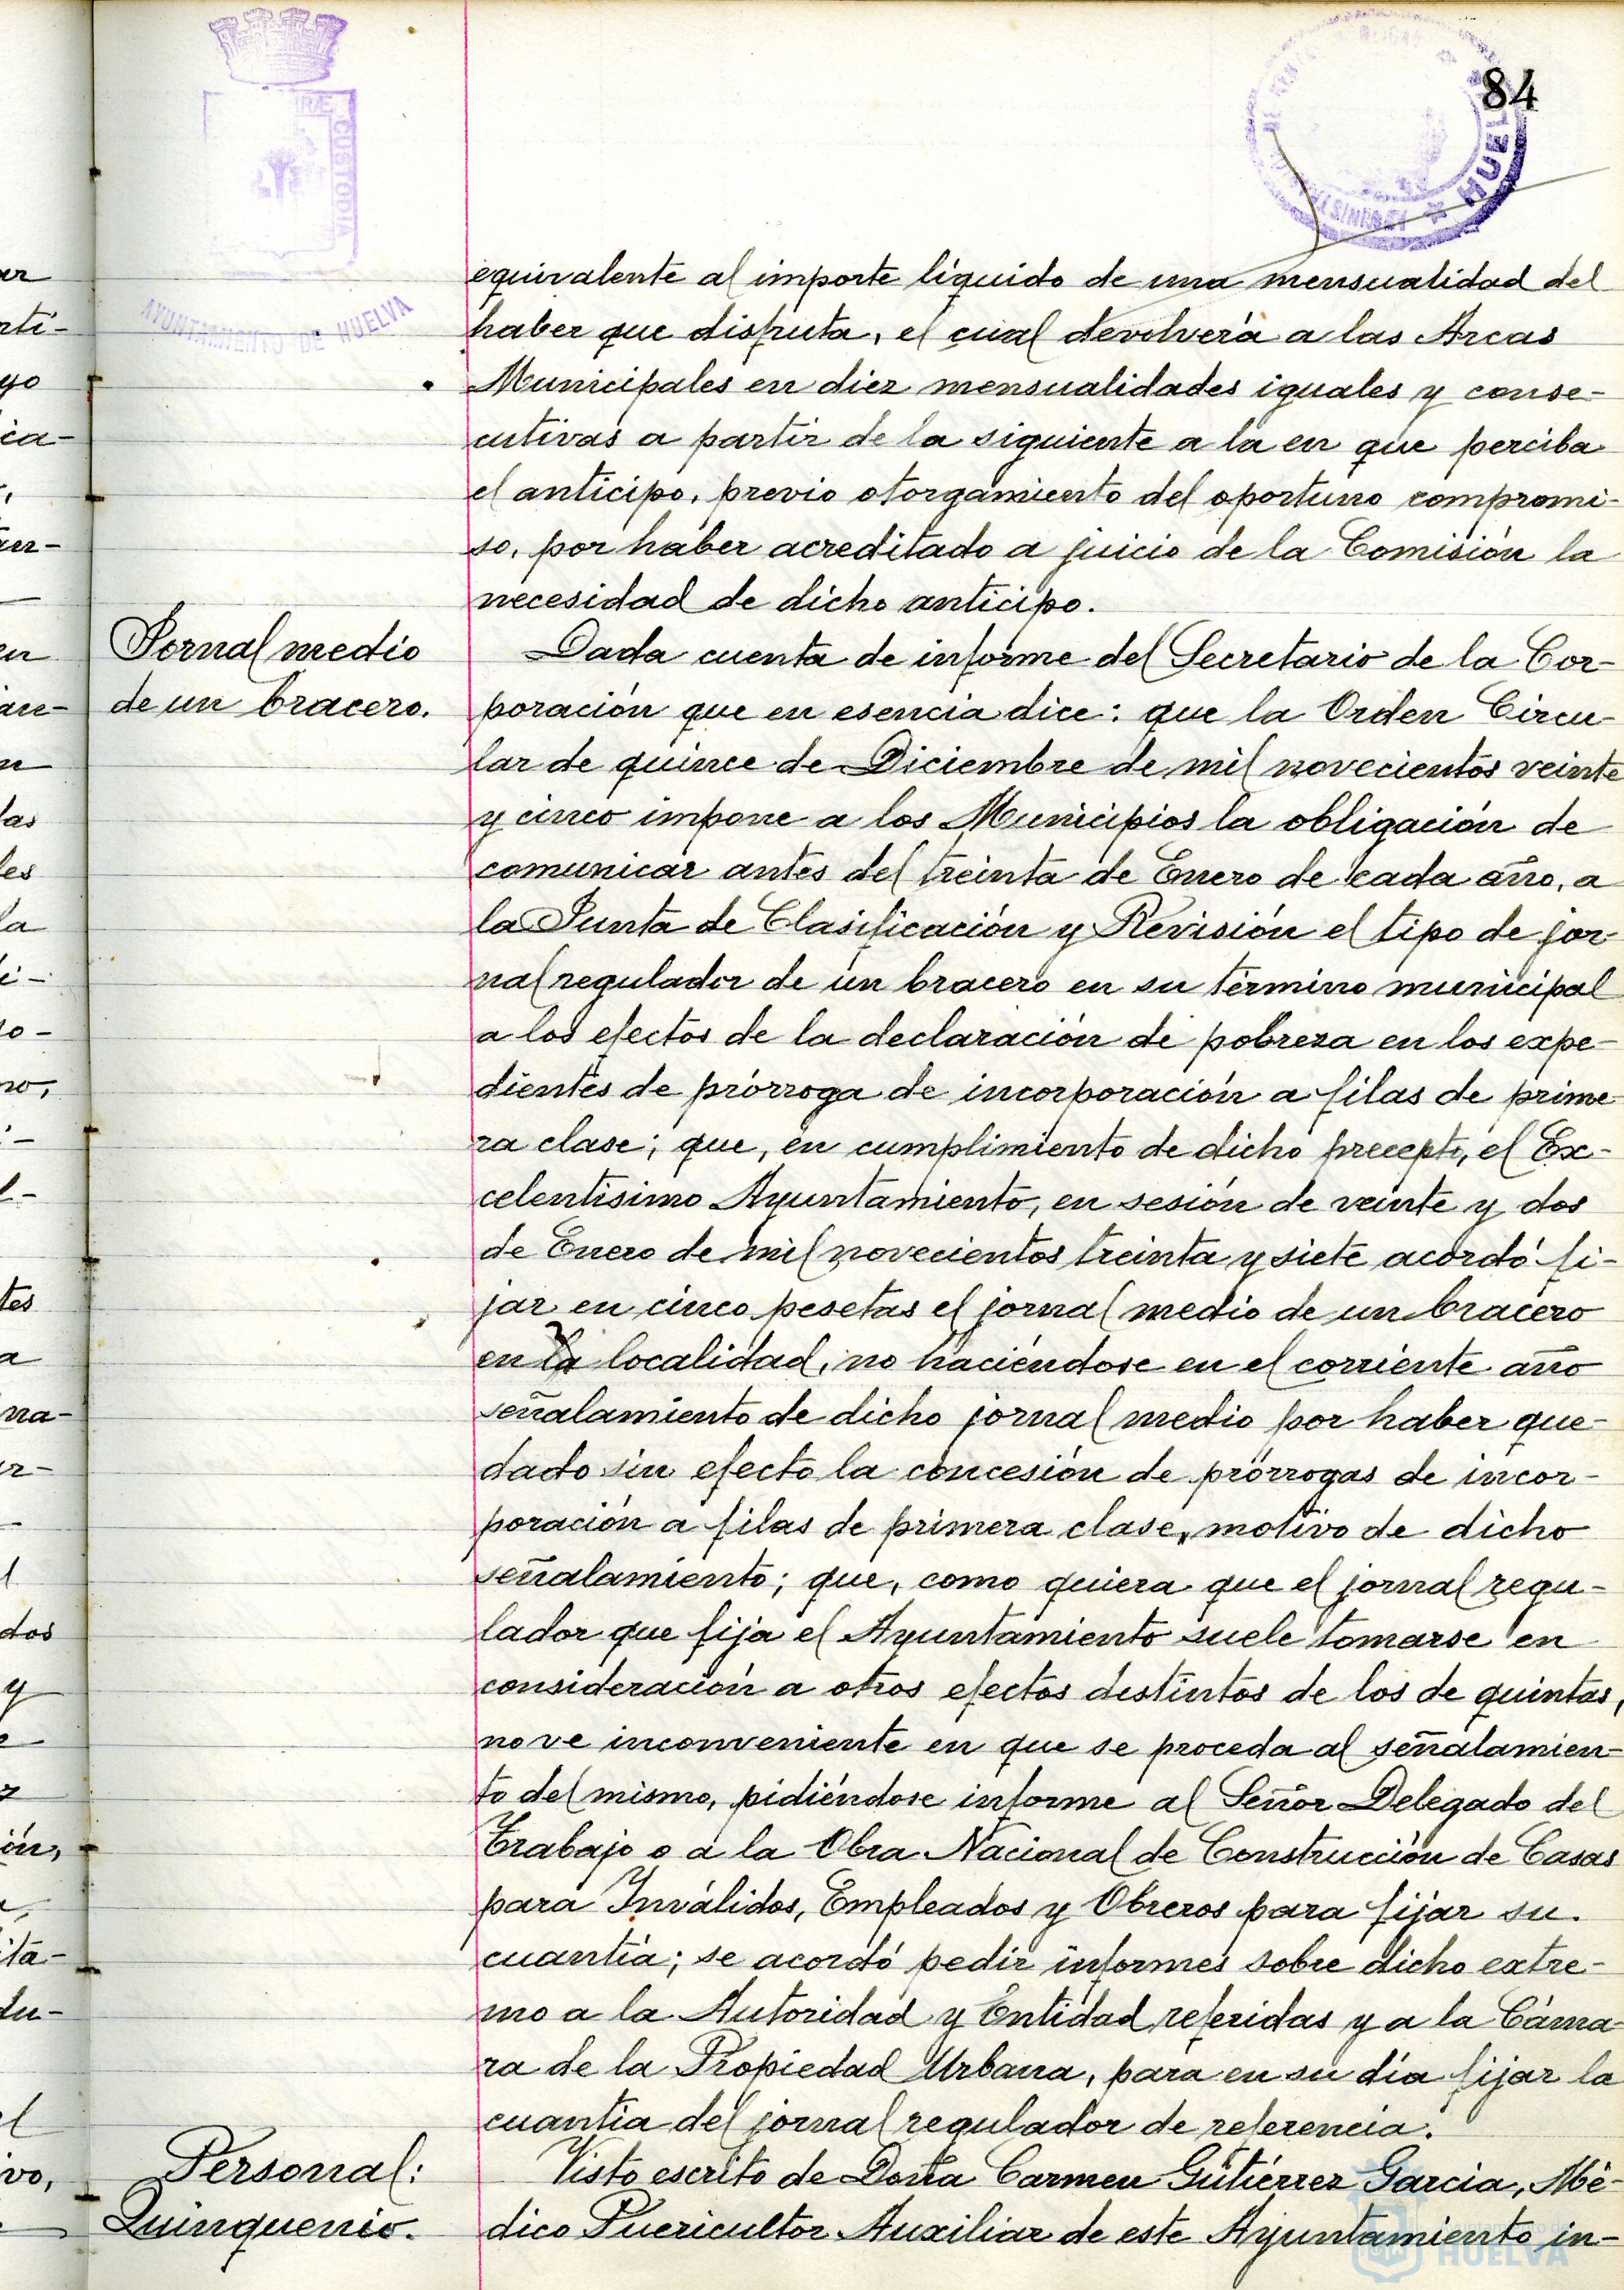 84
CUSTODIA
HUELVA
AYUNTAMIENTO DE HUELVA
equivalente al importe líquido de una mensualidad del
haber que disfruta, el cual devolverá a las Arcas
Municipales en diez mensualidades iguales y conse-
cutivas a partir de la siguiente a la en que perciba
el anticipo, previo otorgamiento del oportuno compromi-
so, por haber acreditado a juicio de la Comisión la
necesidad de dicho anticipo.
Jornal medio
de un bracero.
Dada cuenta de informe del Secretario de la Cor-
poración que en esencia dice: que la Orden Circu-
lar de quince de Diciembre de mil novecientos veinte
y cinco impone a los Municipios la obligación de
comunicar antes del treinta de Enero de cada año, a
la Junta de Clasificación y Revisión el tipo de jor-
nal regulador de un bracero en su término municipal
a los efectos de la declaración de pobreza en los expe-
dientes de prórroga de incorporación a filas de prime-
ra clase; que, en cumplimiento de dicho precepto, el Ex-
celentísimo Ayuntamiento, en sesión de veinte y dos
de Enero de mil novecientos treinta y siete acordó fi-
jar en cinco pesetas el jornal medio de un bracero
en la localidad, no haciéndose en el corriente año
señalamiento de dicho jornal medio por haber que-
dado sin efecto la concesión de prórrogas de incor-
poración a filas de primera clase, motivo de dicho
señalamiento; que, como quiera que el jornal regu-
lador que fija el Ayuntamiento suele tomarse en
consideración a otros efectos distintos de los de quintas,
no ve inconveniente en que se proceda al señalamien-
to del mismo, pidiéndose informe al Señor Delegado del
Trabajo o a la Obra Nacional de Construcción de Casas
para Inválidos, Empleados y Obreros para fijar su
cuantía; se acordó pedir informes sobre dicho extre-
mo a la Autoridad y Entidad referidas y a la Cáma-
ra de la Propiedad Urbana, para en su día fijar la
cuantía del jornal regulador de referencia.
Personal:
Quinquenio.
Visto escrito de Doña Carmen Gutiérrez García, Mé-
dico Puericultor Auxiliar de este Ayuntamiento in-
HUELVA